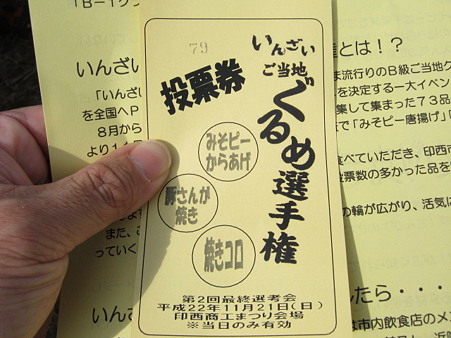 79
投票券
いんざい
ご当地
ぐるめ選手権
みそピー
からあげ
豚さんが
焼き
焼きコロ
第2回最終選考会
平成22年11月21日(日)
印西商工まつり会場
※当日のみ有効
「B-1グ
いんざい
「いんざ
を全国へP
8月から
より14
とは!?
ま流行りのB級ご当地グ
を決定する一大イベン
集して集まった73品
で「みそピー唐揚げ」「
べていただき、印西市
投票数の多かった品を
の輪が広がり、活気に
また、こ
っていく
いんざ
したら・・・
は市内飲食店のメン